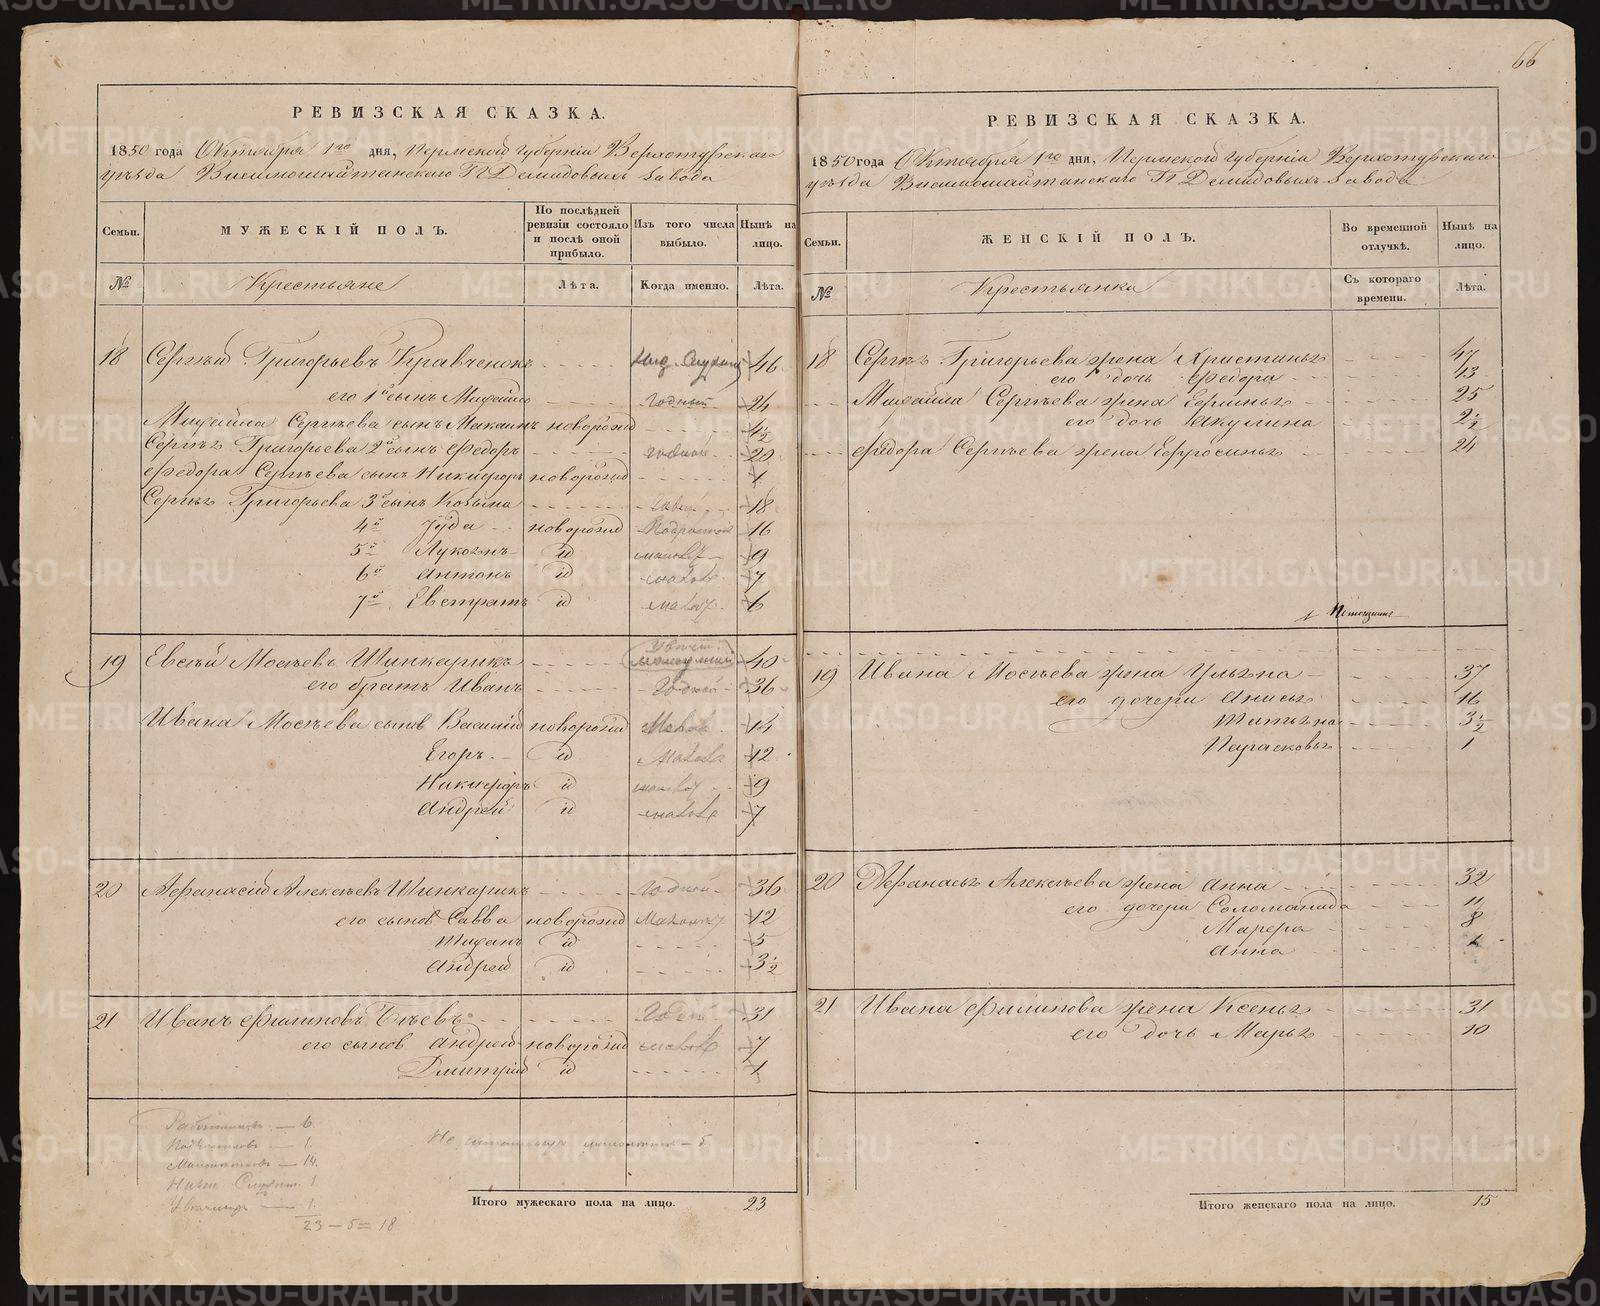 66
РЕВИЗСКАЯ СКАЗКА.
1850 года Октября 1го дня, Пермской губернiи Верхотурскаго
уѣзда Висимошайтанскаго П Демидовыхъ завода
Семьи.
МУЖЕСКIЙ ПОЛЪ.
По послѣдней ревизiи состояло и послѣ оной прибыло.
Изъ того числа выбыло.
Нынѣ на лицо.
№
Крестьяне
Лѣта.
Когда именно.
Лѣта.
18 Сергѣй Григорьевъ Кравченокъ 46
его 1й сынъ Михайло годный 24
Михайла Сергѣева сынъ новорожд 4½
Сергѣя Григорьева 2й сынъ Федоръ годной 20
Федора Сергѣева сынъ Никифоръ новорожд 1
Сергѣя Григорьева 3й сынъ Козьма 18
4й Iуда новорожд 16
5й id 9
6й Антонъ id 7
7й Евстратъ id 6
19 Евсѣй Мосѣевъ Шинкарикъ 40
его братъ Иванъ Годной 36
Ивана Мосѣева сынов Василiй новорожд 14
Егоръ id 12
Никифоръ id 9
Андрей id 7
20 Афанасiй Алексѣевъ Шинкарикъ Годной 36
его сынов Савва новорожд 12
id 5
Андрей id 3½
21 Иванъ Филиповъ Бѣевъ 31
его сынов Андрей новорожд 7
Дмитрiй id 1
Работниковъ — 6
— 1.
— 14.
1
— 1.
23 – 5 = 18
Итого мужескаго пола на лицо. 23
РЕВИЗСКАЯ СКАЗКА.
1850 года Октября 1го дня, Пермской губернiи Верхотурскаго
уѣзда Висимошайтанскаго П Демидовыхъ завода
Семьи.
ЖЕНСКIЙ ПОЛЪ.
Во временной отлучкѣ.
Нынѣ на лицо.
№
Крестьянки
Съ котораго времени.
Лѣта.
18 Сергѣя Григорьева жена Христинья 47
его дочь Федора 13
Михайла Сергѣева жена 25
его дочь Акулина 2½
Федора Сергѣева жена Ефросинья 24
19 Ивана Мосѣева жена Ульяна 37
его дочери Анисья 16
Татьяна 3½
Парасковья 1
20 Афанасья Алексѣева жена Анна 32
его дочери Соломанида 11
Марфа 8
Анна 1
21 Ивана Филипова жена Ксенья 31
его дочь Марья 10
Итого женскаго пола на лицо. 15
METRIKI.GASO-URAL.RU